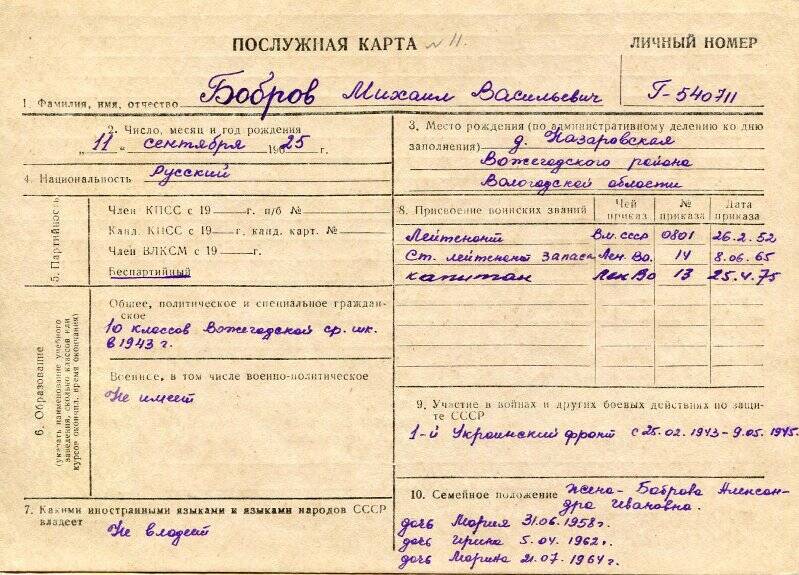 ПОСЛУЖНАЯ КАРТА № 11.
ЛИЧНЫЙ НОМЕР
1. Фамилия, имя, отчество Бобров Михаил Васильевич
Г-540711
2. Число, месяц и год рождения
„11“ сентября 1925 г.
3. Место рождения (по административному делению ко дню
заполнения) д. Назаровская
Вожегодского района
Вологодской области
4. Национальность Русский
5. Партийность
Член КПСС с 19 — г. п/б № —
Канд. КПСС с 19 — г. канд. карт. № —
Член ВЛКСМ с 19 — г.
Беспартийный
8. Присвоение воинских званий
Чей приказ
№ приказа
Дата приказа
Лейтенант В.м. ссср 0801 26.2.52
Ст. лейтенант запаса Лен. Во. 14 8.06.65
капитан Лен Во 13 25.4.75
6. Образование
(указать наименование учебного
заведения, сколько классов или
курсов окончил, время окончания)
Общее, политическое и специальное граждан-
ское
10 классов Вожегодской ср. шк.
в 1943 г.
Военное, в том числе военно-политическое
Не имеет
9. Участие в войнах и других боевых действиях по защи-
те СССР
1-й Украинский фронт с 25.02.1943-9.05.1945.
7. Какими иностранными языками и языками народов СССР
владеет
Не владеет
10. Семейное положение жена- Боброва Алексан-
дра Ивановна.
дочь Мария 31.06.1958г.
дочь Ирина 5.04.1962г.
дочь Марина 21.07.1964г.